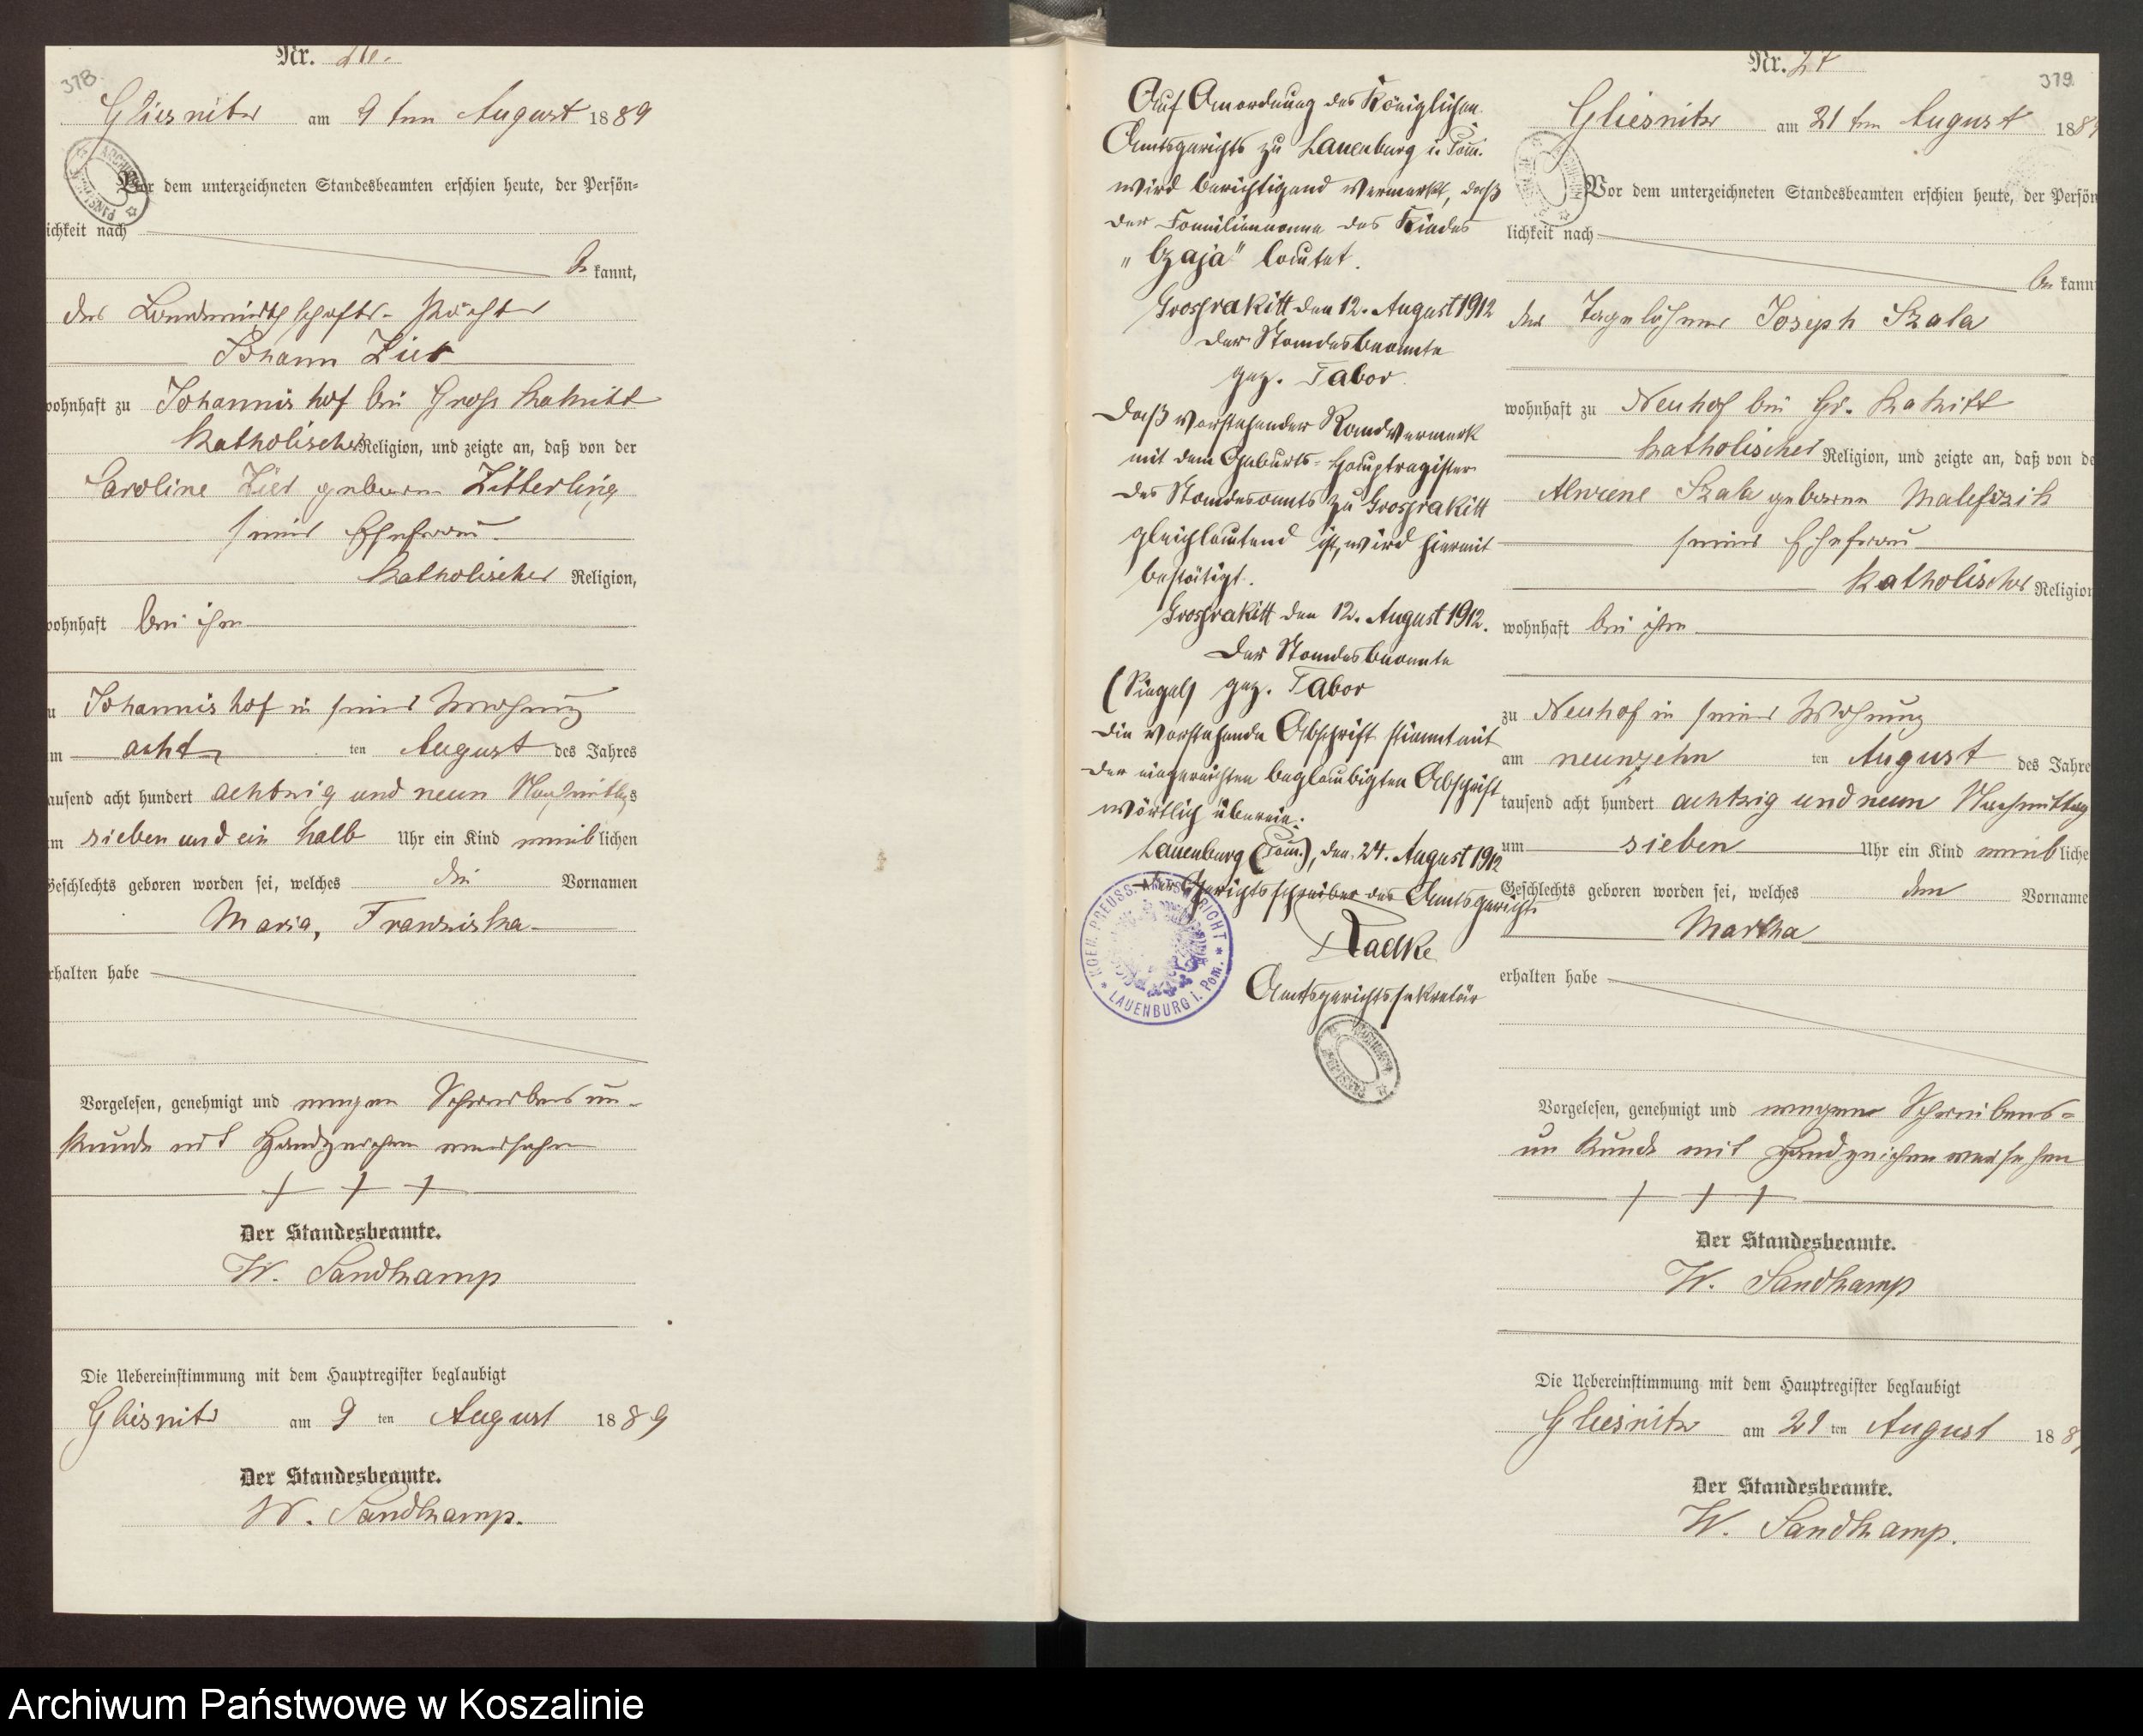 378.
Nr. 26.
Gliesnitz am 9 ten August 1889
Vor dem unterzeichneten Standesbeamten erschien heute, der Persön-
lichkeit nach
be kannt,
der Landwirthschafts-Pächter
Johann
wohnhaft zu Johannishof bei Gross Rakitt
katholischer Religion, und zeigte an, daß von der
Caroline geborene Zitterling
seiner Ehefrau
katholischer Religion,
wohnhaft bei ihm
zu Johannishof in seiner Wohnung
am acht ten August des Jahres
tausend acht hundert achtzig und neun Nachmittags
um sieben und ein halb Uhr ein Kind weiblichen
Geschlechts geboren worden sei, welches die Vornamen
Maria, Franziska
erhalten habe
Vorgelesen, genehmigt und wegen Schreibensun-
kunde mit Handzeichen versehen
+ + +
Der Standesbeamte.
W. Sandkamp
Die Uebereinstimmung mit dem Hauptregister beglaubigt
Gliesnitz am 9 ten August 1889
Der Standesbeamte.
W. Sandkamp.
Auf Anordnung des Königlichen
Amtsgerichts zu Lauenburg i. Pom.
wird berichtigend vermerkt, daß
der Familienname des Kindes
„Czaja" lautet.
Grossrakitt den 12. August 1912
Der Standesbeamte
gez. Tabor.
Daß vorstehender Randvermerk
mit dem Geburts-Hauptregister
des Standesamts zu Grossrakitt
gleichlautend ist, wird hiermit
bestätigt.
Grossrakitt den 12. August 1912.
Der Standesbeamte
(Siegel) gez. Tabor
Die vorstehende Abschrift stimmt mit
der eingereichten beglaubigten Abschrift
wörtlich überein.
Lauenburg (Pom.), den 24. August 1912
Der Gerichtsschreiber des Amtsgerichts
Radke
Amtsgerichtssekretär
KOEN. PREUSS. AMTSGERICHT * LAUENBURG i. Pom. *
379
Nr. 27
Gliesnitz am 21 ten August 188
Vor dem unterzeichneten Standesbeamten erschien heute, der Persön
lichkeit nach
be kann
der Tagelöhner Joseph Szala
wohnhaft zu Neuhof bei Gr. Rakitt
katholischer Religion, und zeigte an, daß von de
Alwiene Szala geborene
seiner Ehefrau
katholischer Religion
wohnhaft bei ihm
zu Neuhof in seiner Wohnung
am neunzehn ten August des Jahre
tausend acht hundert achtzig und neun Nachmittag
um sieben Uhr ein Kind weibliche
Geschlechts geboren worden sei, welches den Vorname
Martha
erhalten habe
Vorgelesen, genehmigt und wegen Schreibens-
unkunde mit Handzeichen versehen
+ + +
Der Standesbeamte.
W. Sandkamp
Die Uebereinstimmung mit dem Hauptregister beglaubigt
Gliesnitz am 21 ten August 188
Der Standesbeamte.
W. Sandkamp.
Archiwum Państwowe w Koszalinie